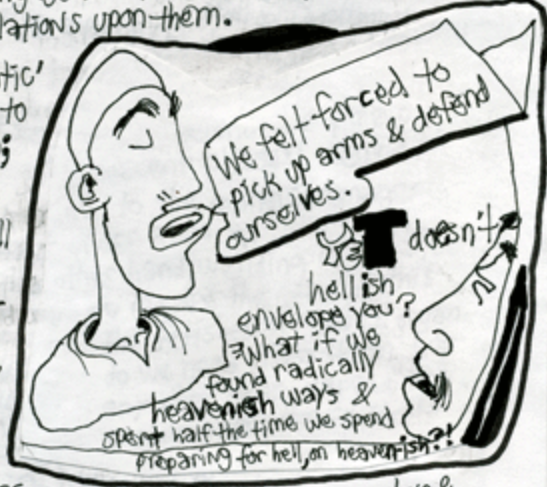 lations upon them.
tic'
to
;
We felt forced to
pick up arms & defend
ourselves.
YeT doesn't
hellish
envelope you?
What if we
found radically
heavenish ways &
spent half the time we spend
preparing for hell, on heavenish?!